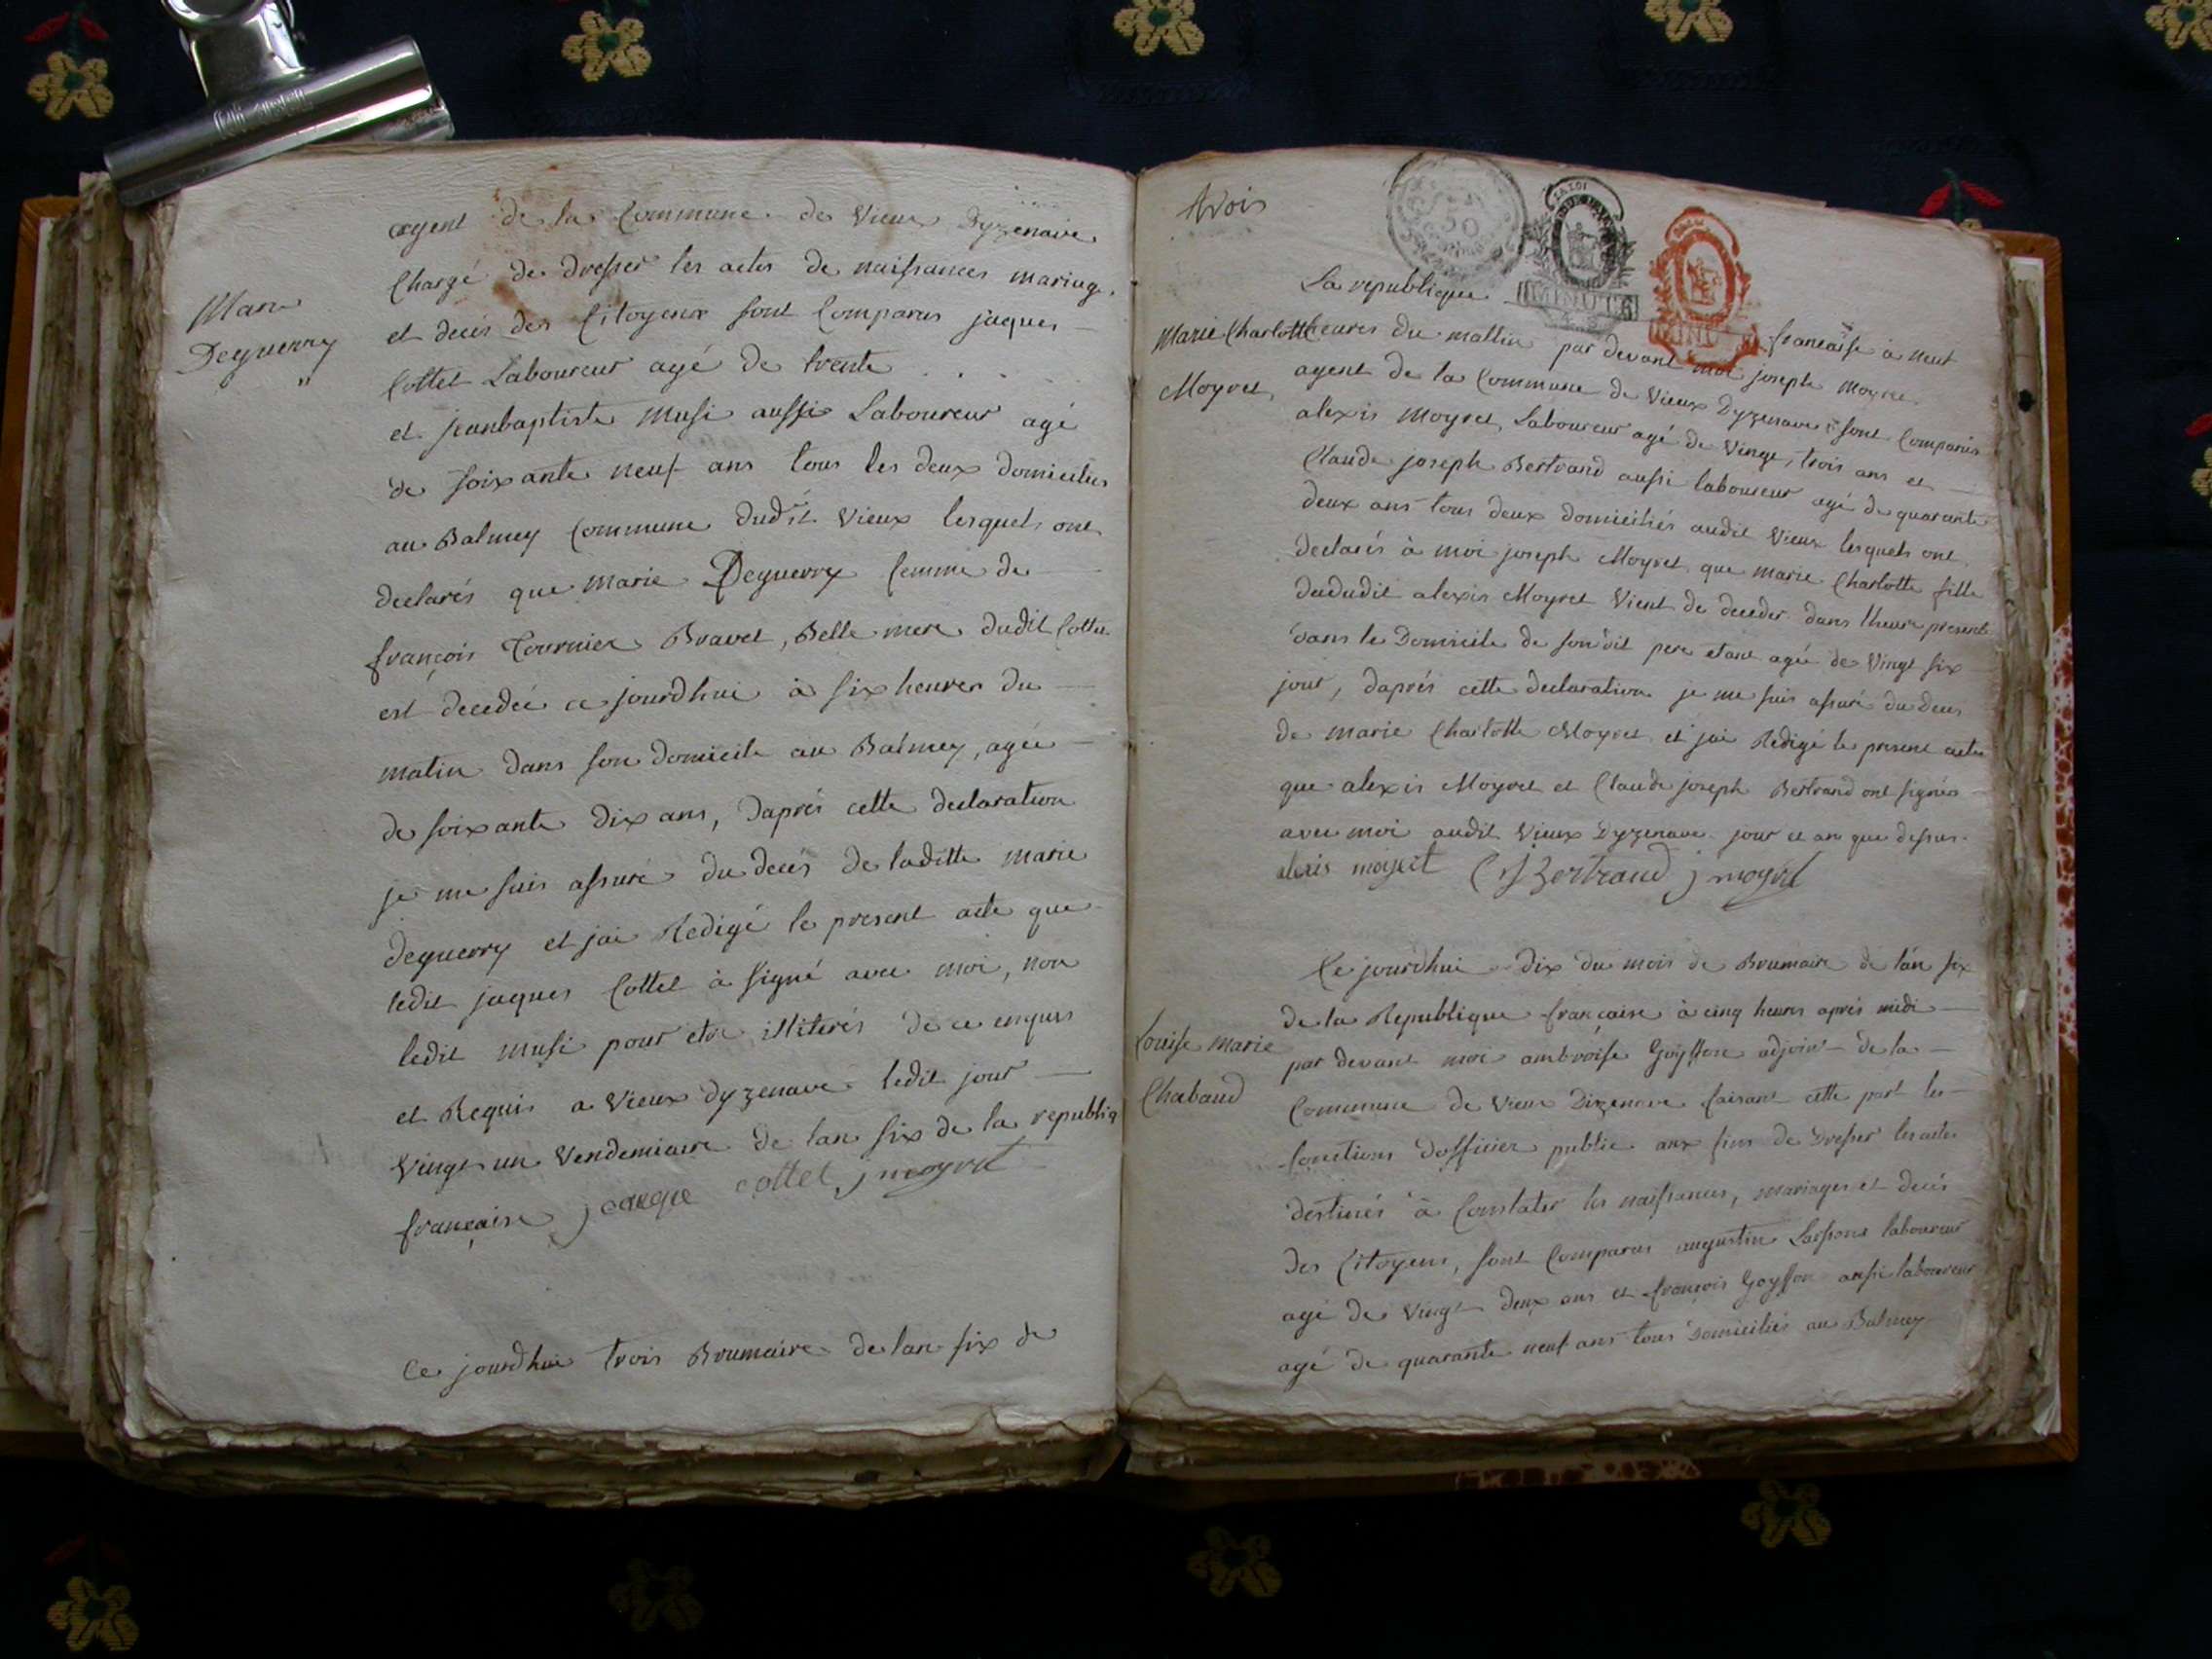 Marie
Deguerry
agent de la Commune de Vieux Dyzenave
Chargé de dresser les actes de naissances mariag.
et decés des Citoyens sont Comparus jaques
Cottet Laboureur agé de trente
et jeanbaptiste Musi aussi Laboureur agé
de soixante neuf ans tous les deux domiciliés
au Balmey Commune dudit Vieux lesquels ont
declarés que marie Deguerry femme de
françois Tournier Bravet, Belle mere dudit Cottet
est decedée ce jourdhui à six heures du
matin dans son domicile au Balmey, agée
de soixante dix ans, Daprés cette declaration
je me suis assuré du decés de laditte marie
deguerry et jai Redigé le present acte que
ledit jaques Cottet à signé avec moi, non
ledit musi pour etre illiterés de ce enquis
et Requis a Vieux dyzenave ledit jour
Vingt un Vendemiaire de lan six de la republiq
française jaque cottet j moyret
Ce jourdhui trois Brumaire de lan six de
trois
MINUTE
MINUTE
La republique française à neuf
Marie Charlotte
Moyret,
heures du mattin par devant moi joseph Moyret
agent de la Commune de Vieux Dyzenave sont Comparus
alexis Moyret, Laboureur agé de Vingt, trois ans et
Claude joseph Bertrand aussi laboureur agé de quarante
deux ans tous deux domiciliés audit Vieux lesquels ont
declarés à moi joseph Moyret que marie Charlotte fille
dududit alexis Moyret Vient de deceder dans lheure presente
dans le Domicile de son dit pere etant agée de Vingt six
jour, daprés cette declaration je me suis assuré du Deces
de marie Charlotte Moyret et jai Redigé le present acte
que alexis Moyret et Claude joseph Bertrand ont signés
avec moi audit Vieux Dyzenave jour et an que dessus.
alexis moyret C J Bertrand j moyret
Louise marie
Chabaud
Ce jourdhui dix du mois de Brumaire de lán six
de la Republique française à cinq heures aprés midi
par devant moi ambroise Goyffon adjoint de la
Commune de Vieux Dizenave faisant cette part les
fonctions dofficier public aux fins de Dresser les actes
destinés à Constater les naissances, mariages et decés
des Citoyens, sont Comparus augustin laboureur
agé de Vingt deux ans et françois Goyffon aussi laboureur
agé de quarante neuf ans tous domiciliés au Balmey